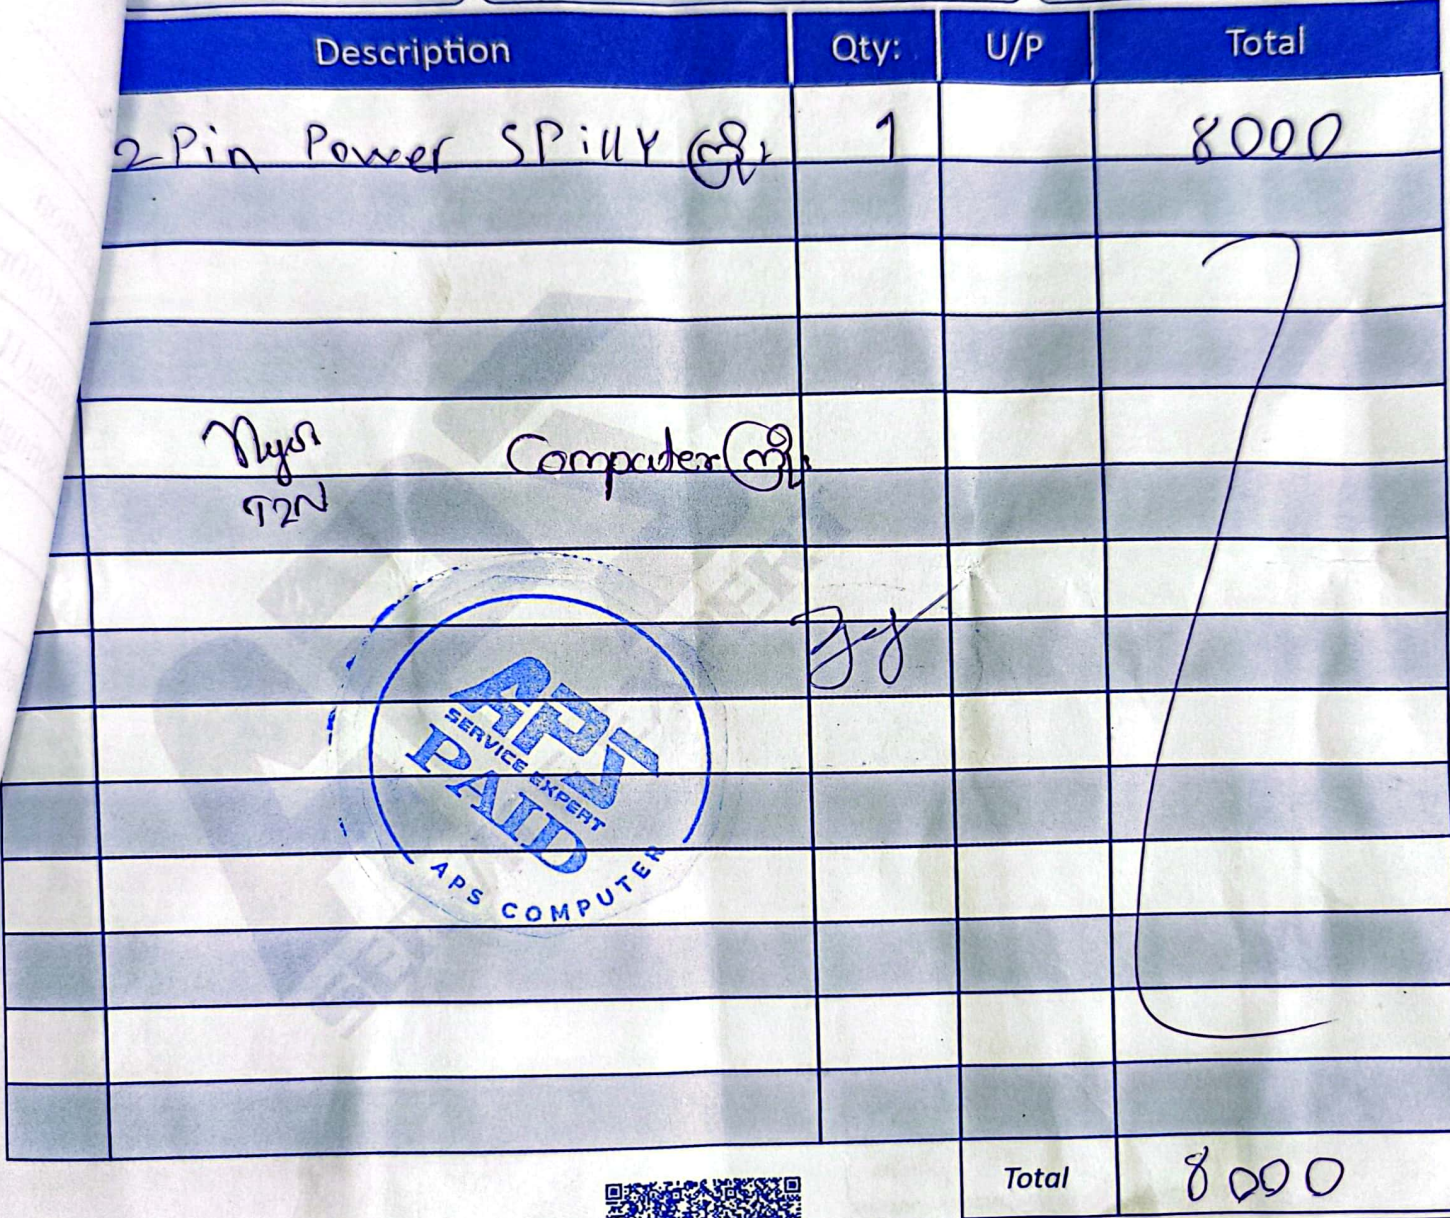 Description Qty: U/P Total
2 Pin Power SPillY ကြိုး 1 8000
Computer ကြိုး
T2N
APS
SERVICE EXPERT
PAID
APS COMPUTER
Total 8000